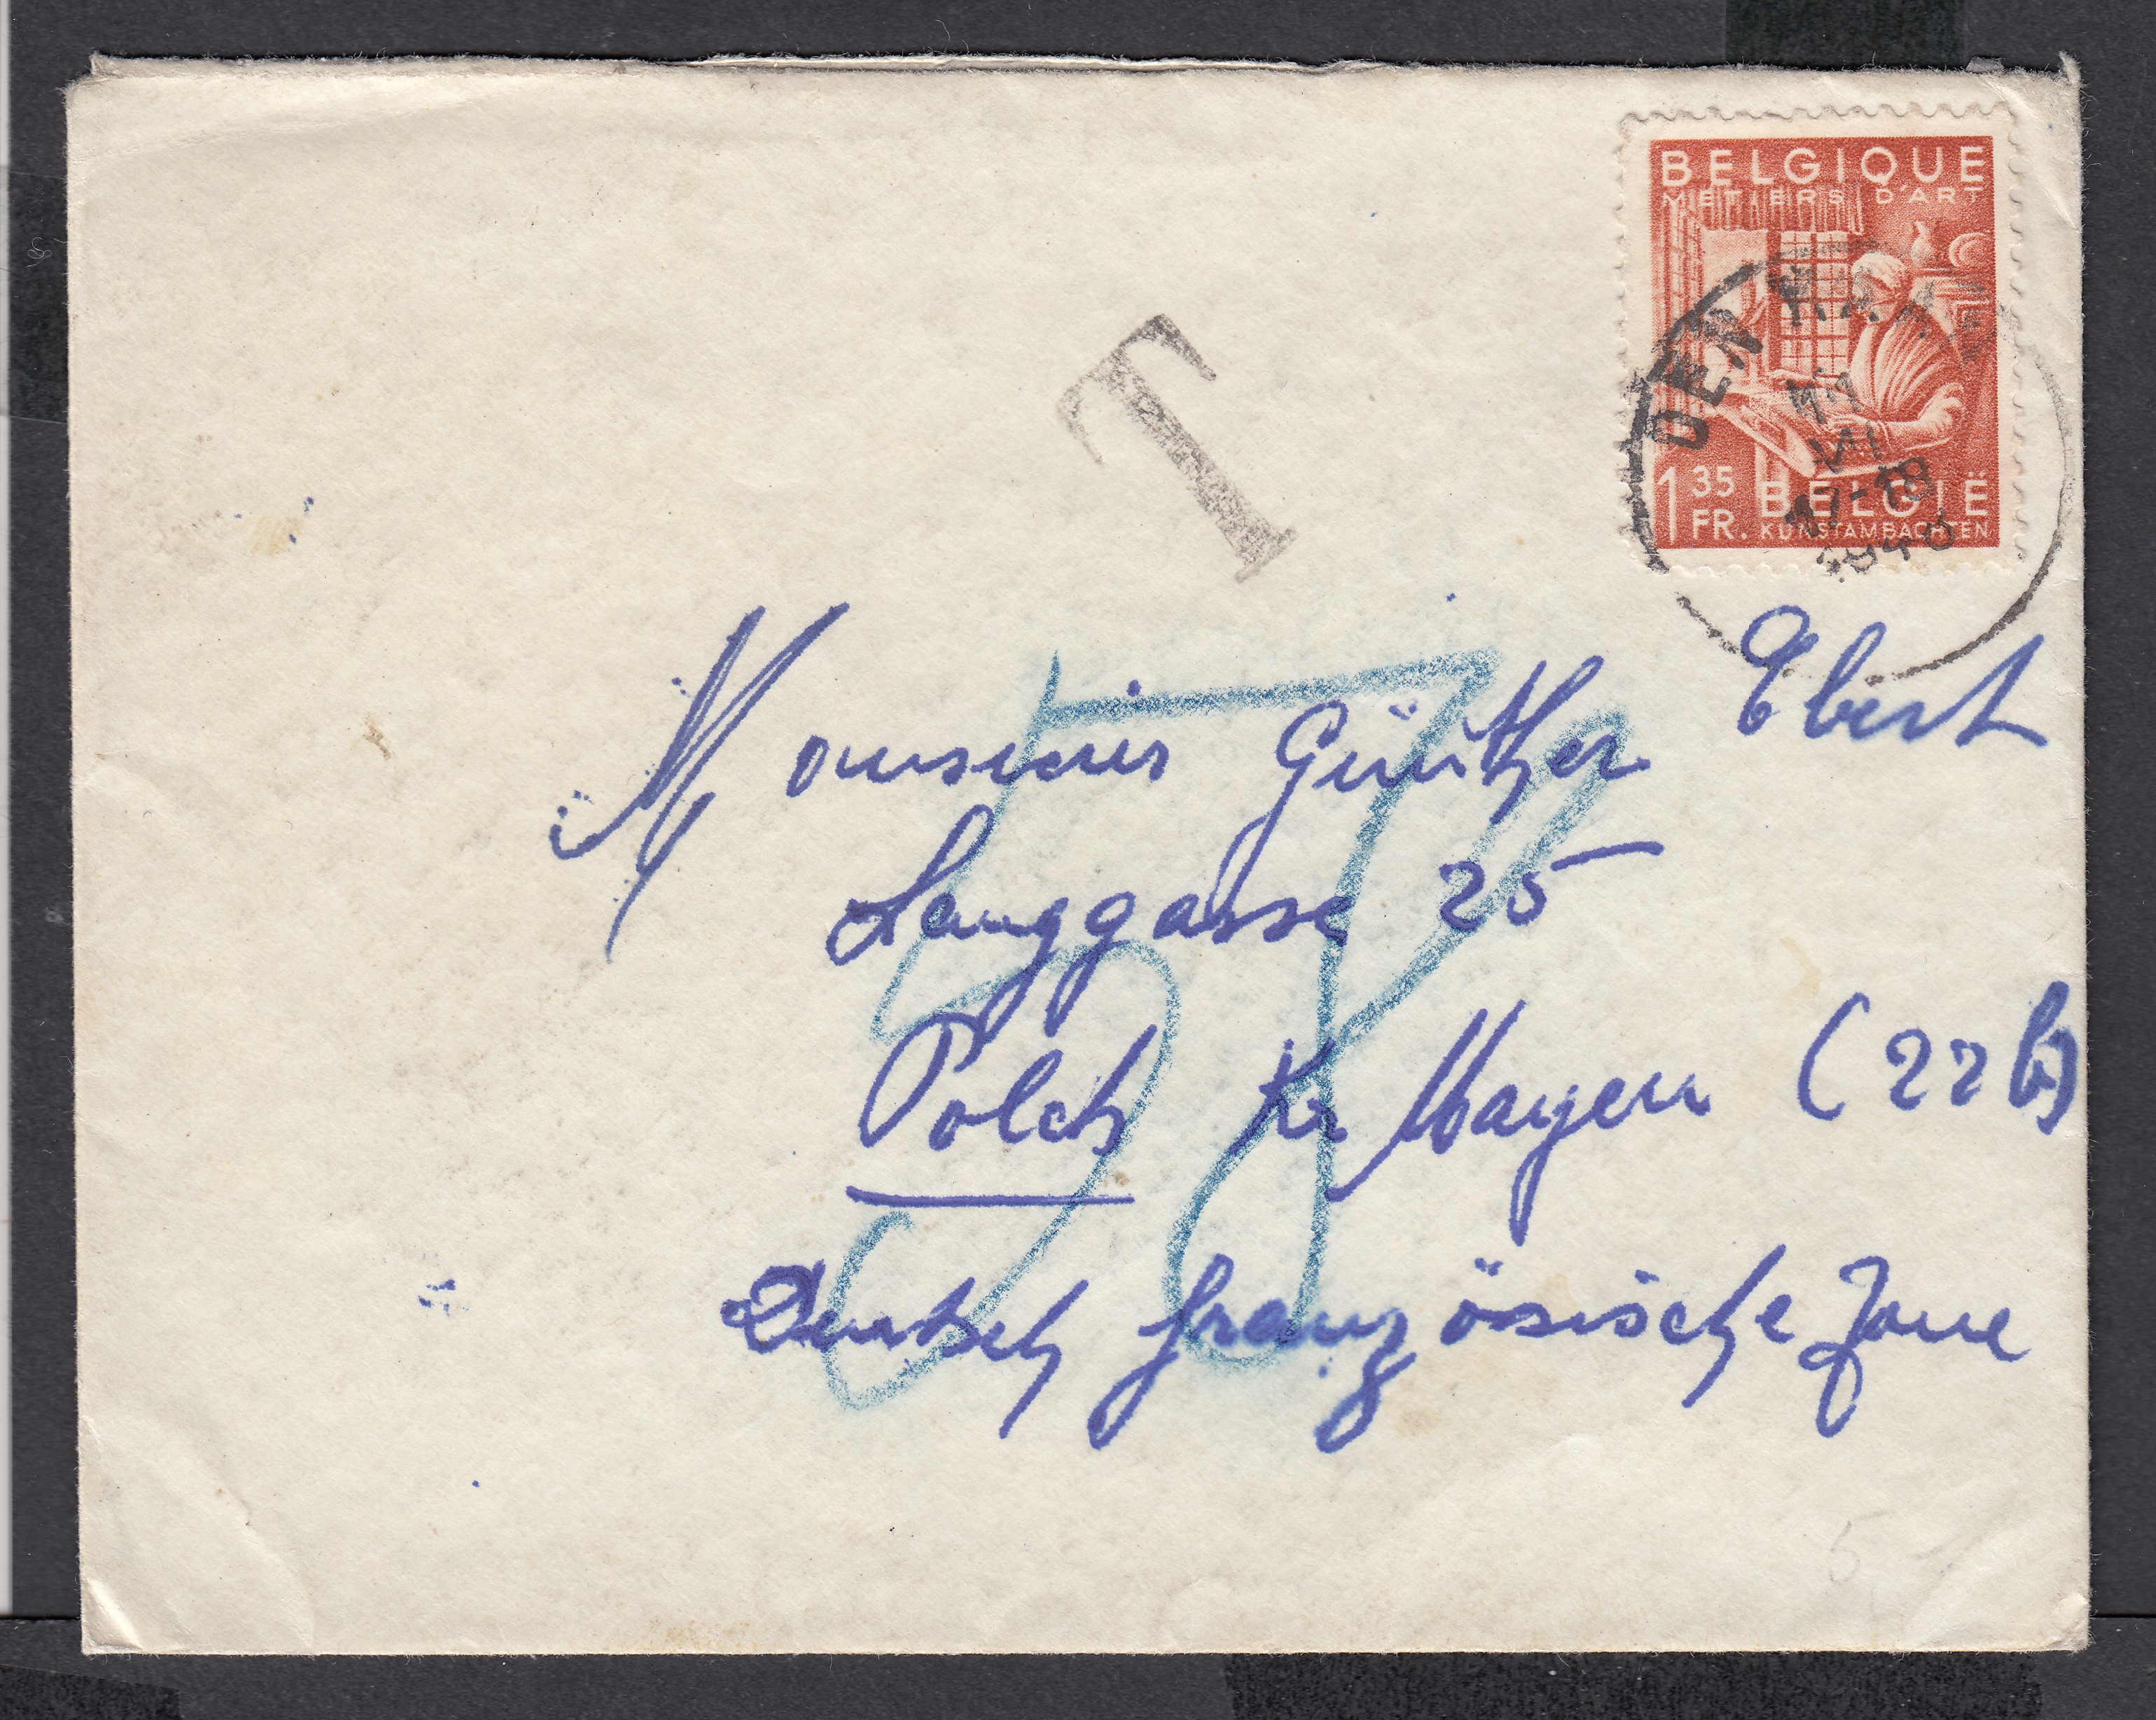 BELGIQUE
METIERS D'ART
1 35 FR. BELGIË
KUNSTAMBACHTEN
DEN
11
VI
17-18
1948
T
Monsieur Günther Ebert
Langgasse 25
Polch Kr Mayen (22b)
Deutsch französische Zone
57
5